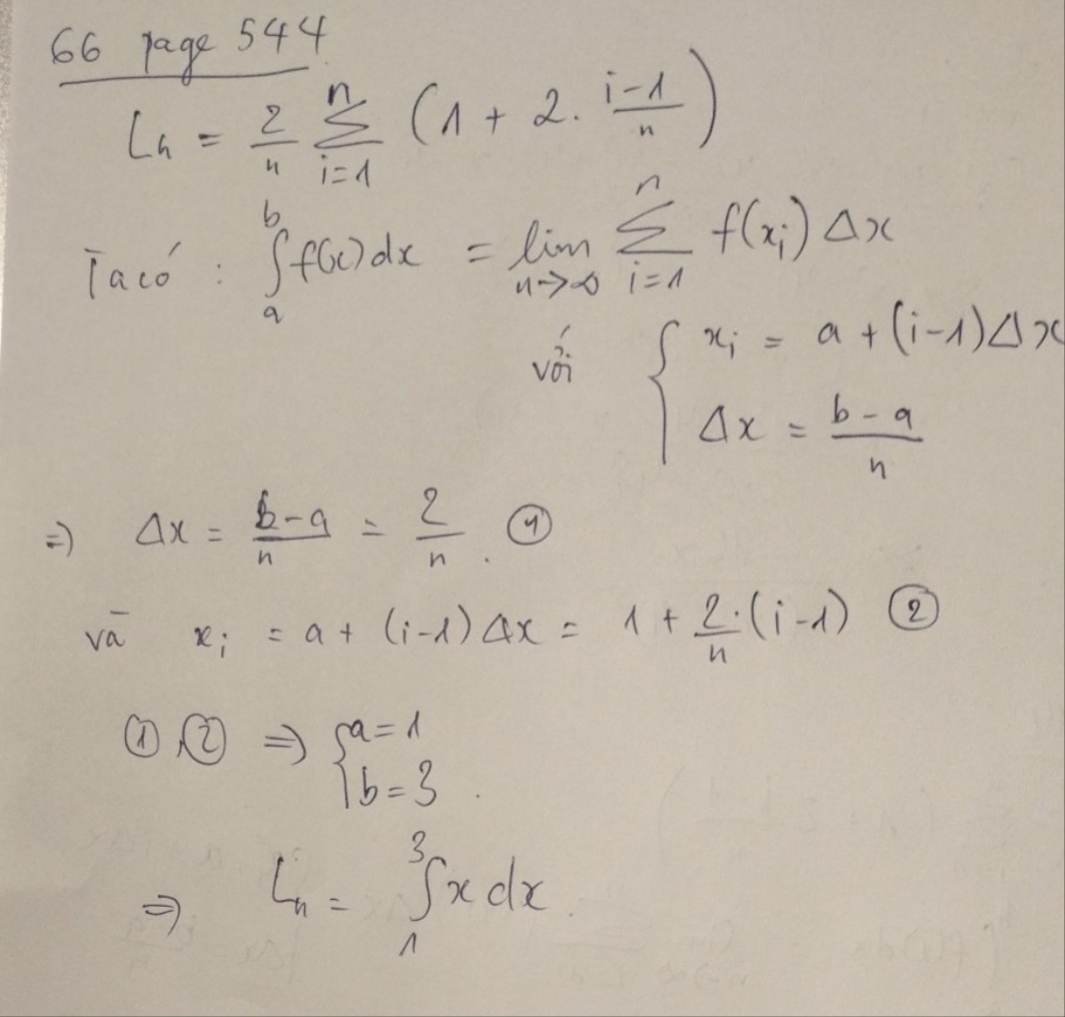 66 page 544
Lₙ = 2/n ∑_{i=1}^{n} (1 + 2. (i-1)/n)
Ta có : ∫_a^b f(x)dx = lim_{n→∞} ∑_{i=1}^{n} f(x_i) Δx
với { x_i = a + (i-1)Δx
Δx = (b-a)/n
⇒ Δx = (b-a)/n = 2/n . ①
và x_i = a + (i-1) Δx = 1 + 2/n.(i-1) ②
①,② ⇒ { a = 1
b = 3 .
⇒ Lₙ = ∫_1^3 x dx .